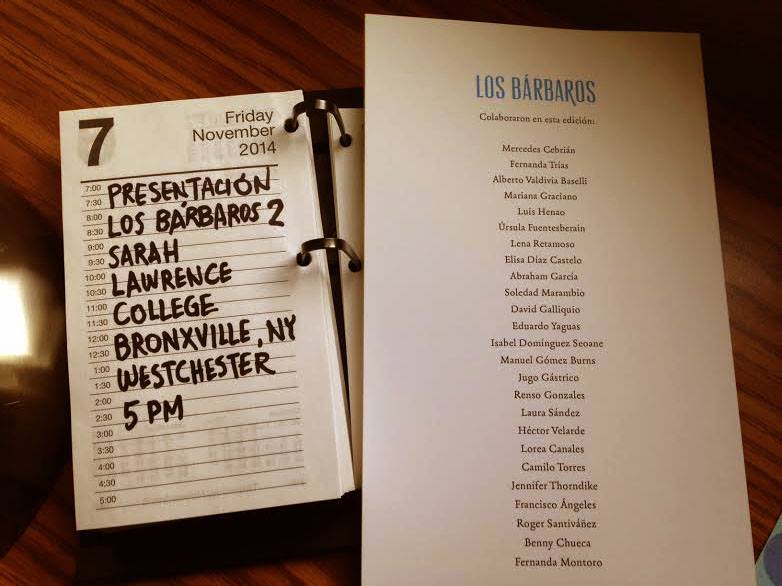 7
Friday
November
2014
7:00
PRESENTACIÓN
7:30
8:00
LOS BÁRBAROS 2
8:30
9:00
SARAH
9:30
10:00
LAWRENCE
10:30
11:00
COLLEGE
11:30
12:00
BRONXVILLE, NY
12:30
1:00
WESTCHESTER
1:30
2:00
5 PM
2:30
3:00
3:30
4:00
4:30
5:00
LOS BÁRBAROS
Colaboraron en esta edición:
Mercedes Cebrián
Fernanda Trías
Alberto Valdivia Baselli
Mariana Graciano
Luis Henao
Úrsula Fuentesberain
Lena Retamoso
Elisa Díaz Castelo
Abraham García
Soledad Marambio
David Galliquio
Eduardo Yaguas
Isabel Domínguez Seoane
Manuel Gómez Burns
Jugo Gástrico
Renso Gonzales
Laura Sández
Héctor Velarde
Lorea Canales
Camilo Torres
Jennifer Thorndike
Francisco Ángeles
Roger Santiváñez
Benny Chueca
Fernanda Montoro